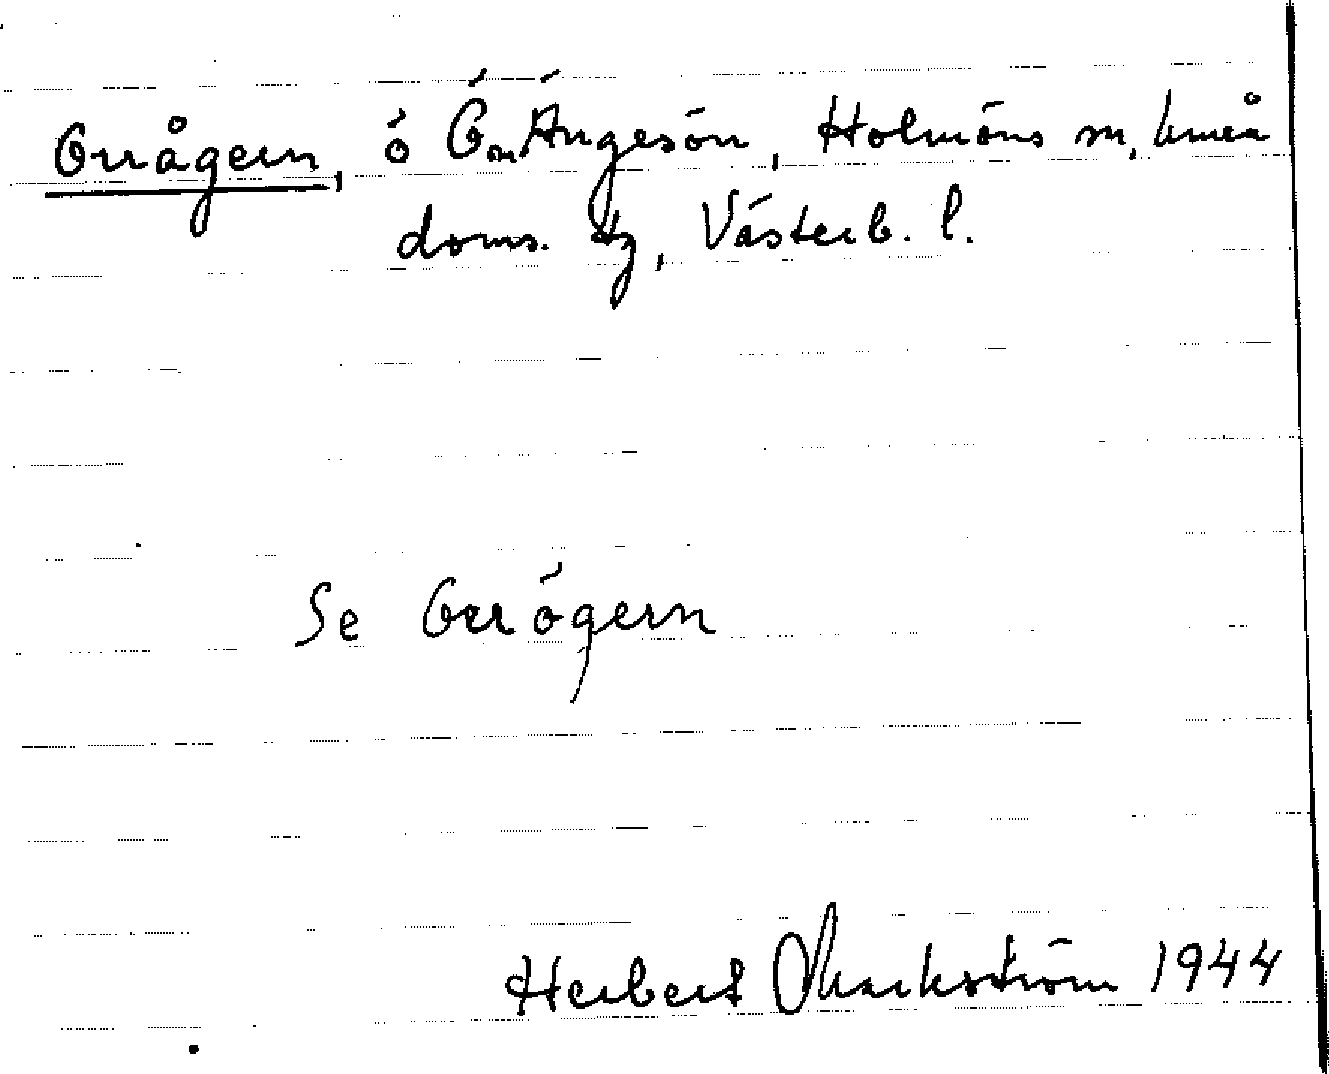 Orrågern, ö Ö om Ängesön, Holmöns sn, Umeå
doms. tg, Västerb. l.
Se Orrögern
Herbert Markström 1944